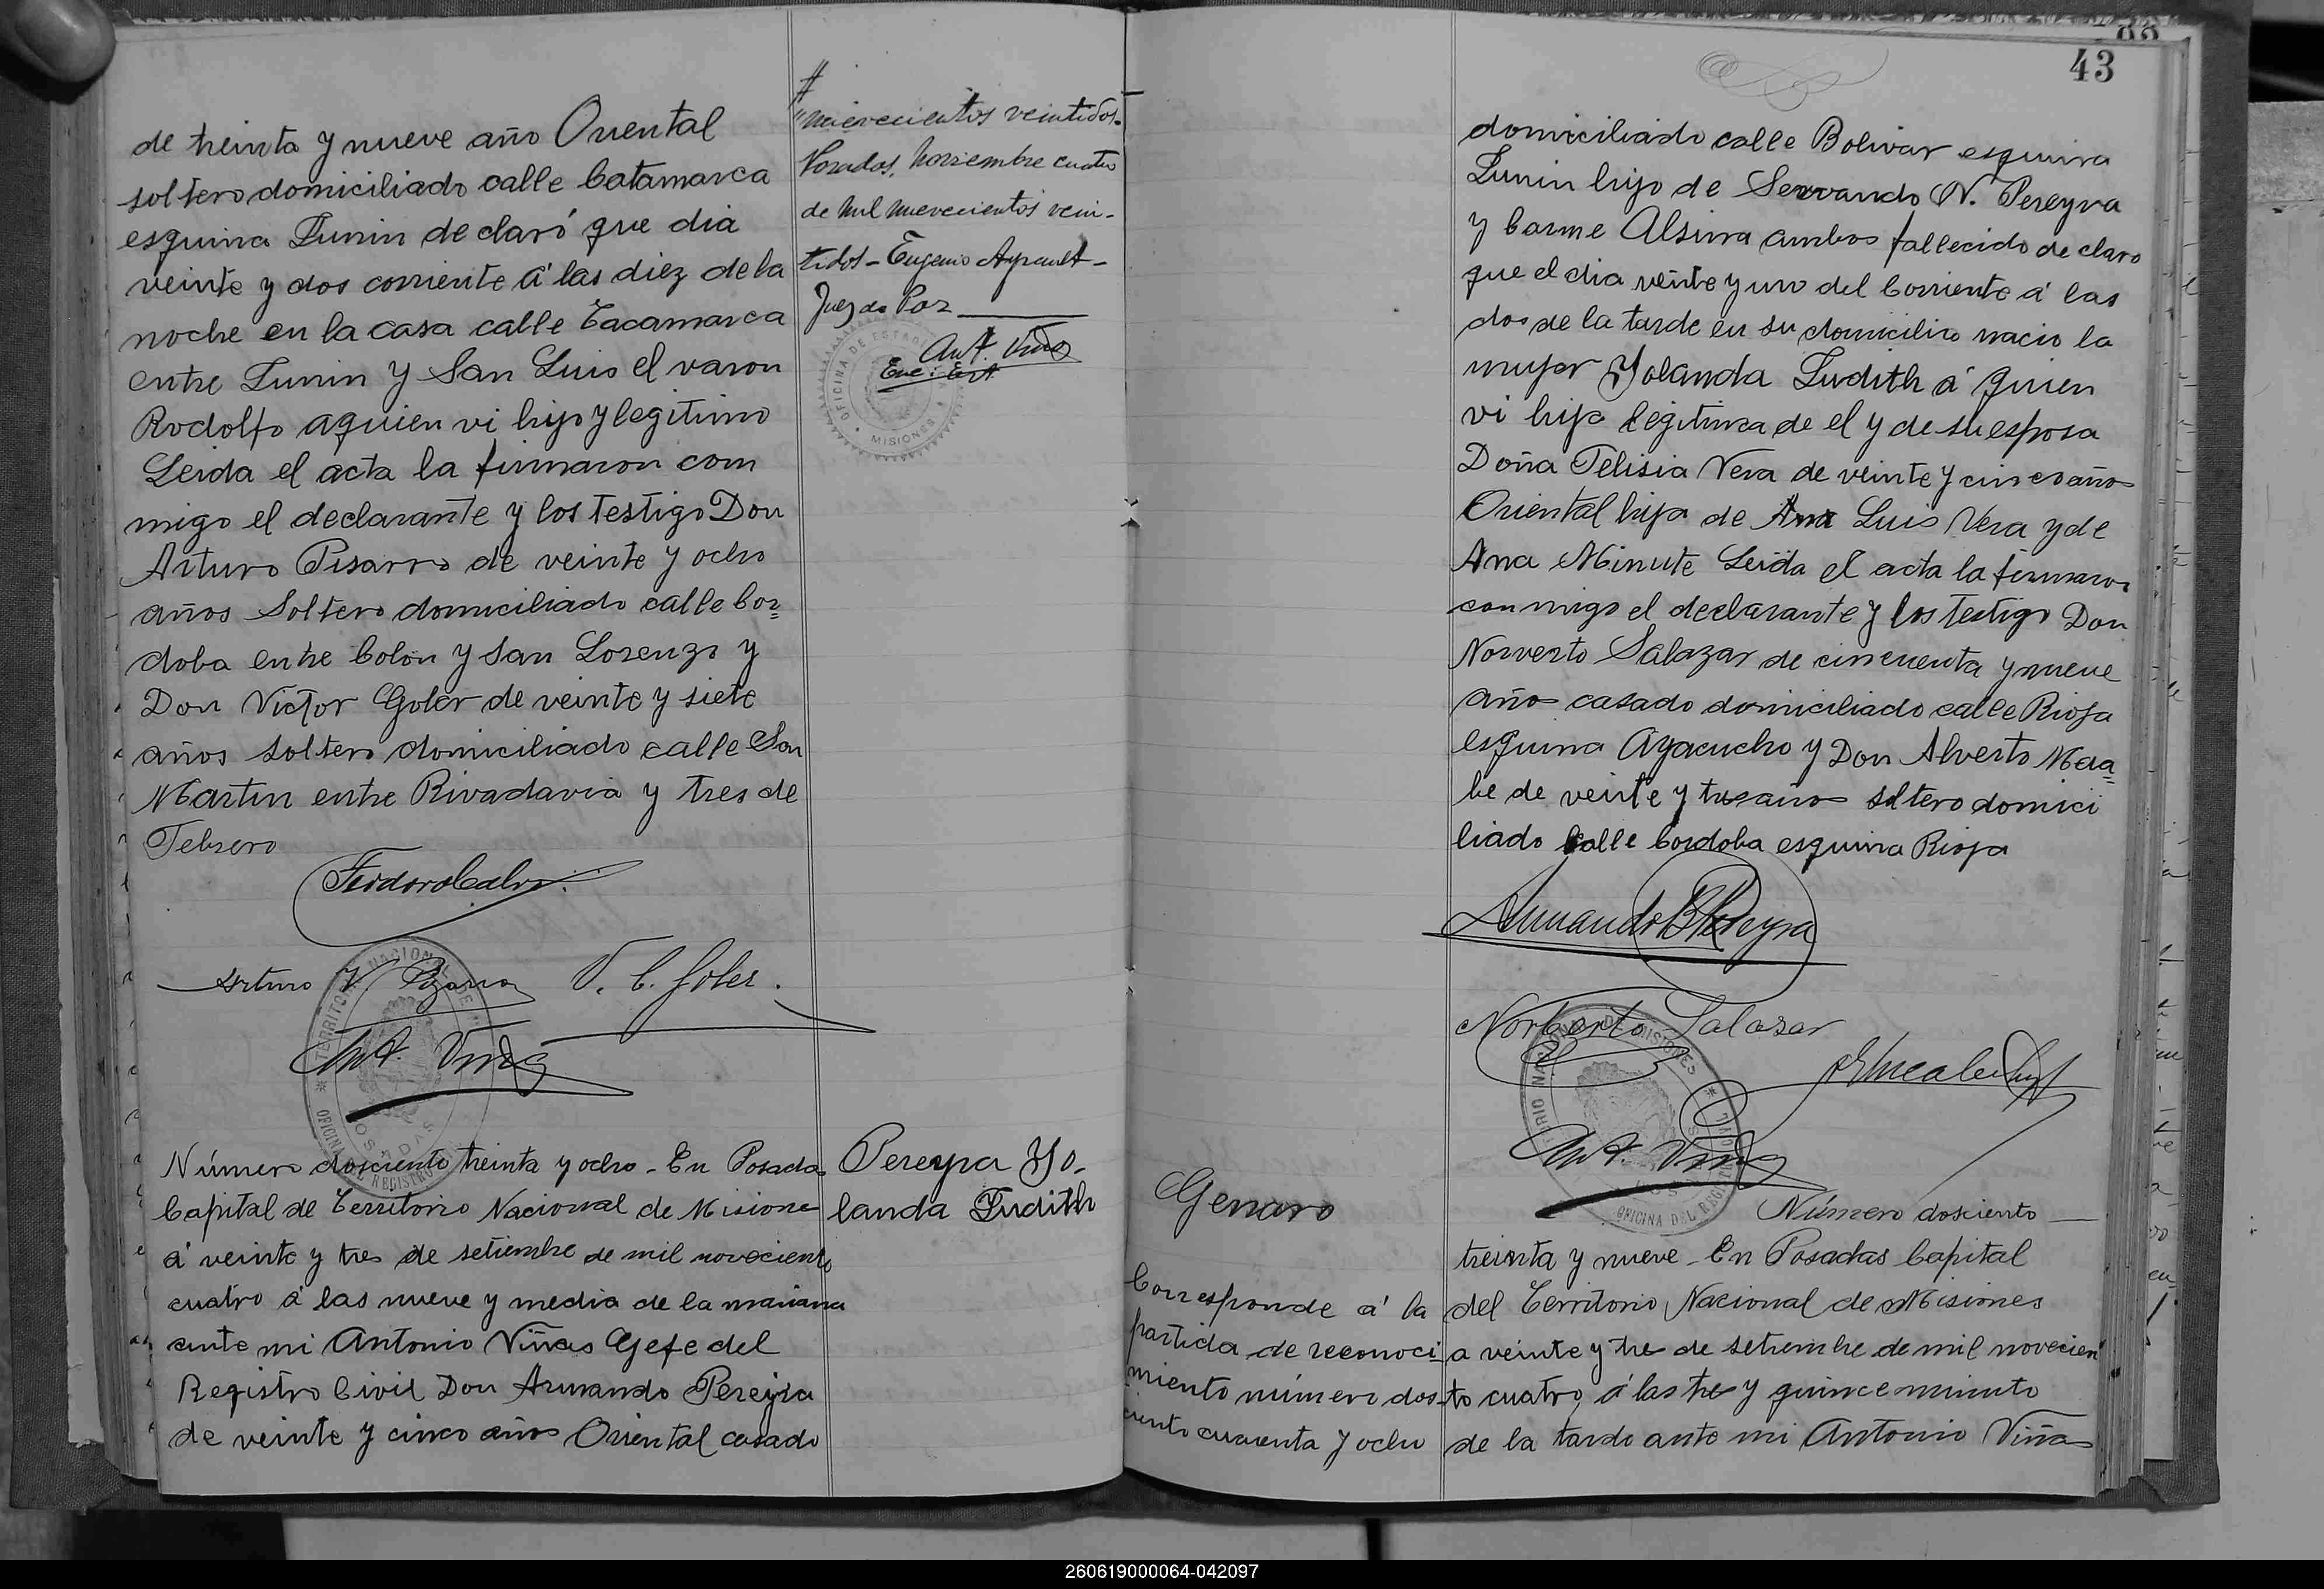 de treinta y nueve año Oriental
soltero domiciliado calle Catamarca
esquina Junin declaró que dia
veinte y dos corriente á las diez de la
noche en la casa calle Tacamarca
entre Junin y San Luis el varon
Rodolfo aquien vi hijo y legitimo
Leida el acta la firmaron com
migo el declarante y los testigo Don
Arturo Pisarro de veinte y ocho
años Soltero domiciliado calle Cor=
doba entre Colon y San Lorenzo y
Don Victor Goler de veinte y siete
años soltero domiciliado calle San
Martin entre Rivadavia y tres de
Febrero
Teodoro Calvo
Arturo V. Pizarro V. C. Goler.
Ant. Viñas
TERRITORIO NACIONAL DE
OFICINA DEL REGISTRO
POSADAS
Número dosciento treinta y ocho - En Posada
Capital de Territorio Nacional de Misione
á veinte y tres de setiembre de mil noveciento
cuatro á las nueve y media de la mañana
ante mi Antonio Viñas Gefe del
Registro Civil Don Armando Pereyra
de veinte y cinco años Oriental casado
#
"nuevecientos veintidos.
Posadas, noviembre cuatro
de mil nuevecientos vein-
tidos - Eugenio
Juez de Paz
Ant. Viñas
Enc:
OFICINA DE ESTADI
MISIONES
Pereyra Yo-
landa Judith
43
domiciliado calle Bolivar esquina
Junin hijo de Servando N. Pereyra
y Carme Alsina ambos fallecido declaro
que el dia veinte y uno del Corriente á las
dos de la tarde en su domicilio nacio la
mujer Yolanda Judith á quien
vi hija legitima de el y de su esposa
Doña Felisia Vera de veinte y cinco año
Oriental hija de Luis Vera y de
Ana Minute Leida el acta la firmaron
conmigo el declarante y los testigo Don
Norverto Salazar de cincuenta y nueve
año casado domiciliado calle Rioja
esquina Ayacucho y Don Alverto Mea=
be de veinte y tres años soltero domici
liado Calle Cordoba esquina Rioja
Armando B Pereyra
Norberto Salazar
Ant. Viñas
NACIONAL DE MISIONES
OFICINA DEL REGISTRO
Genaro
Corresponde á la
partida de reconoci-
miento número dos-
ciento cuarenta y ocho
Número dosciento
treinta y nueve - En Posadas Capital
del Territorio Nacional de Misiones
a veinte y tre de setiembre de mil novecien
to cuatro, á las tre y quince minuto
de la tarde ante mi Antonio Viña
260619000064-042097